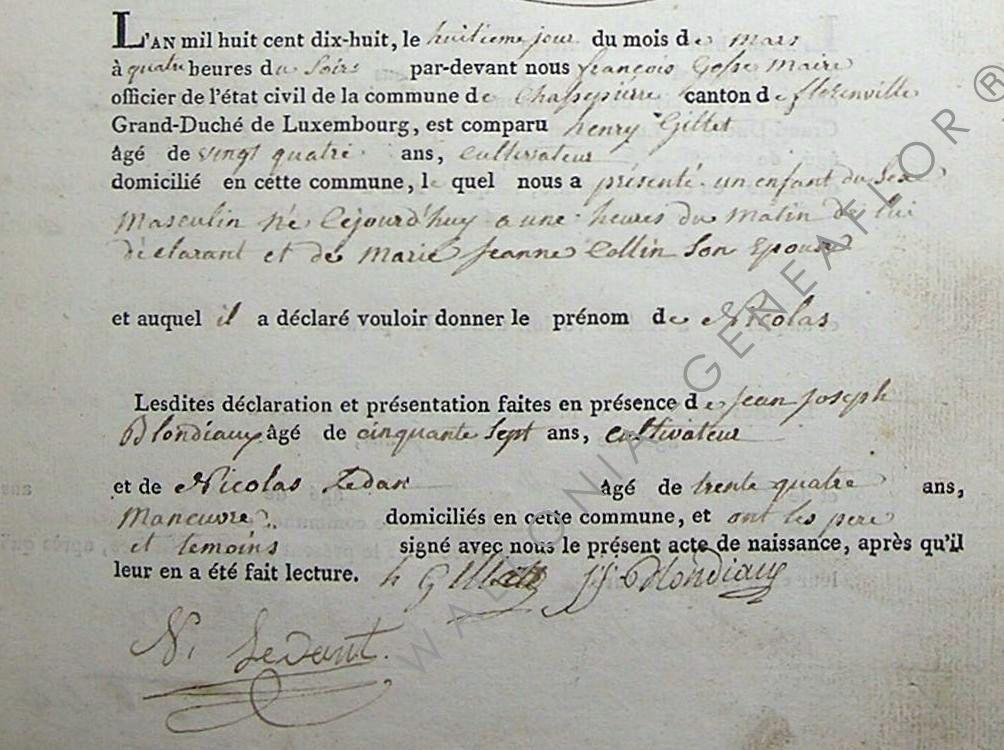 L'AN mil huit cent dix-huit, le huitieme jour du mois de mars
à quatre heures du Soirs par-devant nous françois Gosse Maire
officier de l'état civil de la commune de Chassepierre canton de florenville
Grand-Duché de Luxembourg, est comparu henry Gillet
âgé de vingt quatre ans, Cultivateur
domicilié en cette commune, le quel nous a présenté un enfant du Sex
Masculin né Cejourd'huy a une heures du Matin de lui
déclarant et de Marie Jeanne Collin Son Epouse
et auquel il a déclaré vouloir donner le prénom de Nicolas
Lesdites déclaration et présentation faites en présence de Jean Joseph
Blondiaux âgé de cinquante Sept ans, Cultivateur
et de Nicolas âgé de trente quatre ans,
Maneuvre domiciliés en cette commune, et ont les pere
et temoins signé avec nous le présent acte de naissance, après qu'il
leur en a été fait lecture. h Gillet JJ Blondiaux
N. Sedant
WALLONIA GENEAFLOR ®